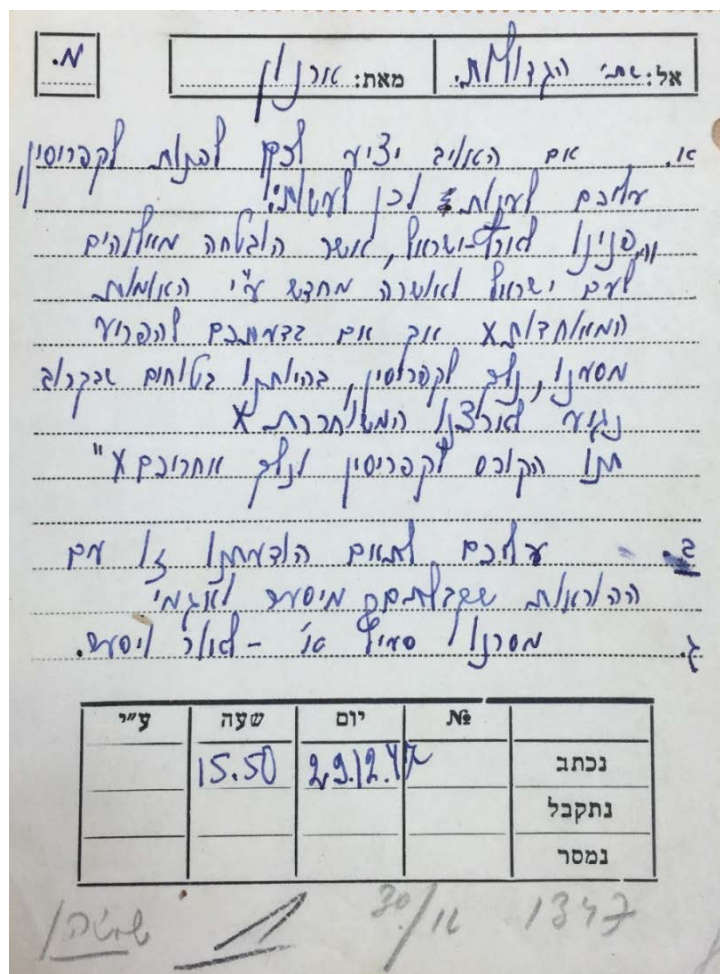 מ.
אל: שתי הגדולות. מאת: ארנון
א. אם האויב יציע לכם לפנות לקפריסין,
עליכם לענות לכן לעשות:
"פנינו לארץ-ישראל, אשר הובטחה מאלוהים
לעם ישראל ואושרה מחדש ע"י האומות
המאוחדות X אך אם בדעתכם להפריע
מסענו, נלך לקפריסין, בהיותנו בטוחים שבקרוב
נגיע לארצנו המשוחררת X
תנו הקורס לקפריסין ונלך אחריכם X"
ב. עליכם לתאם הודעתנו זו עם
ההוראות שקבלתם מיסעור לאגמי
ג. מסרנו סעיף א' - לאור ויסעור.
№ יום שעה ע"י
נכתב 29.12.47 15.50
נתקבל
נמסר
1347 30/12